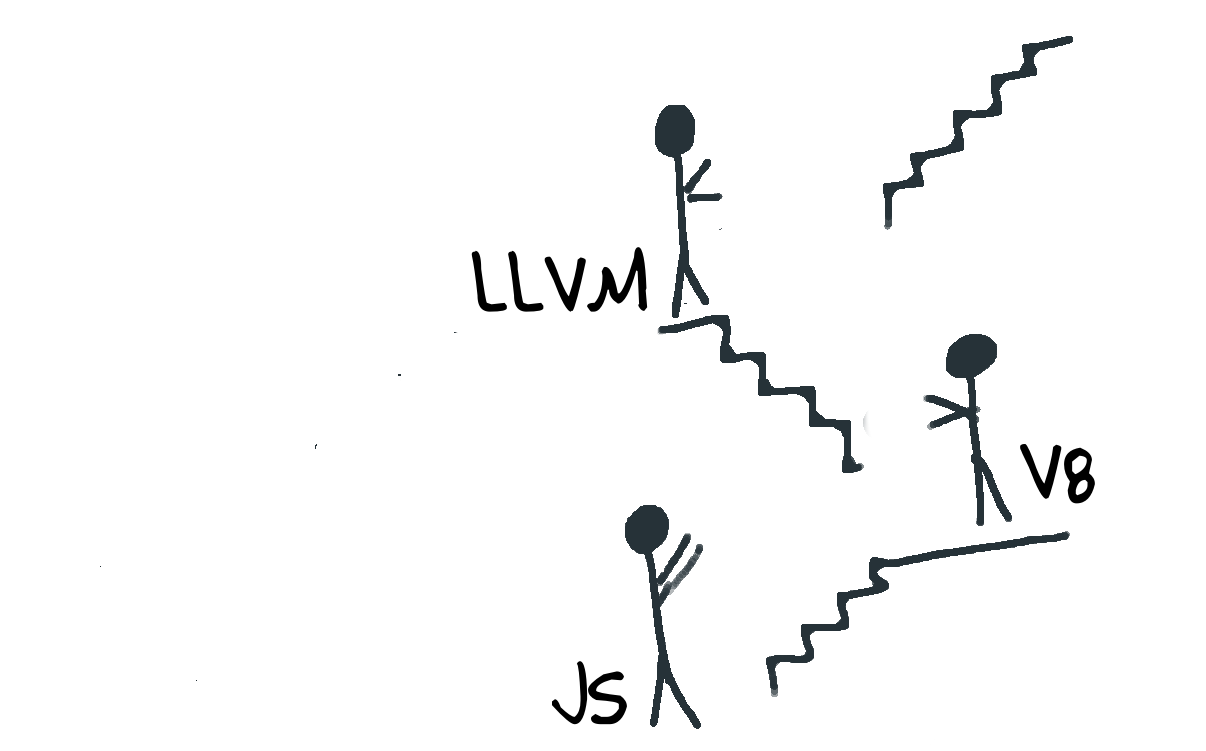 LLVM
V8
JS